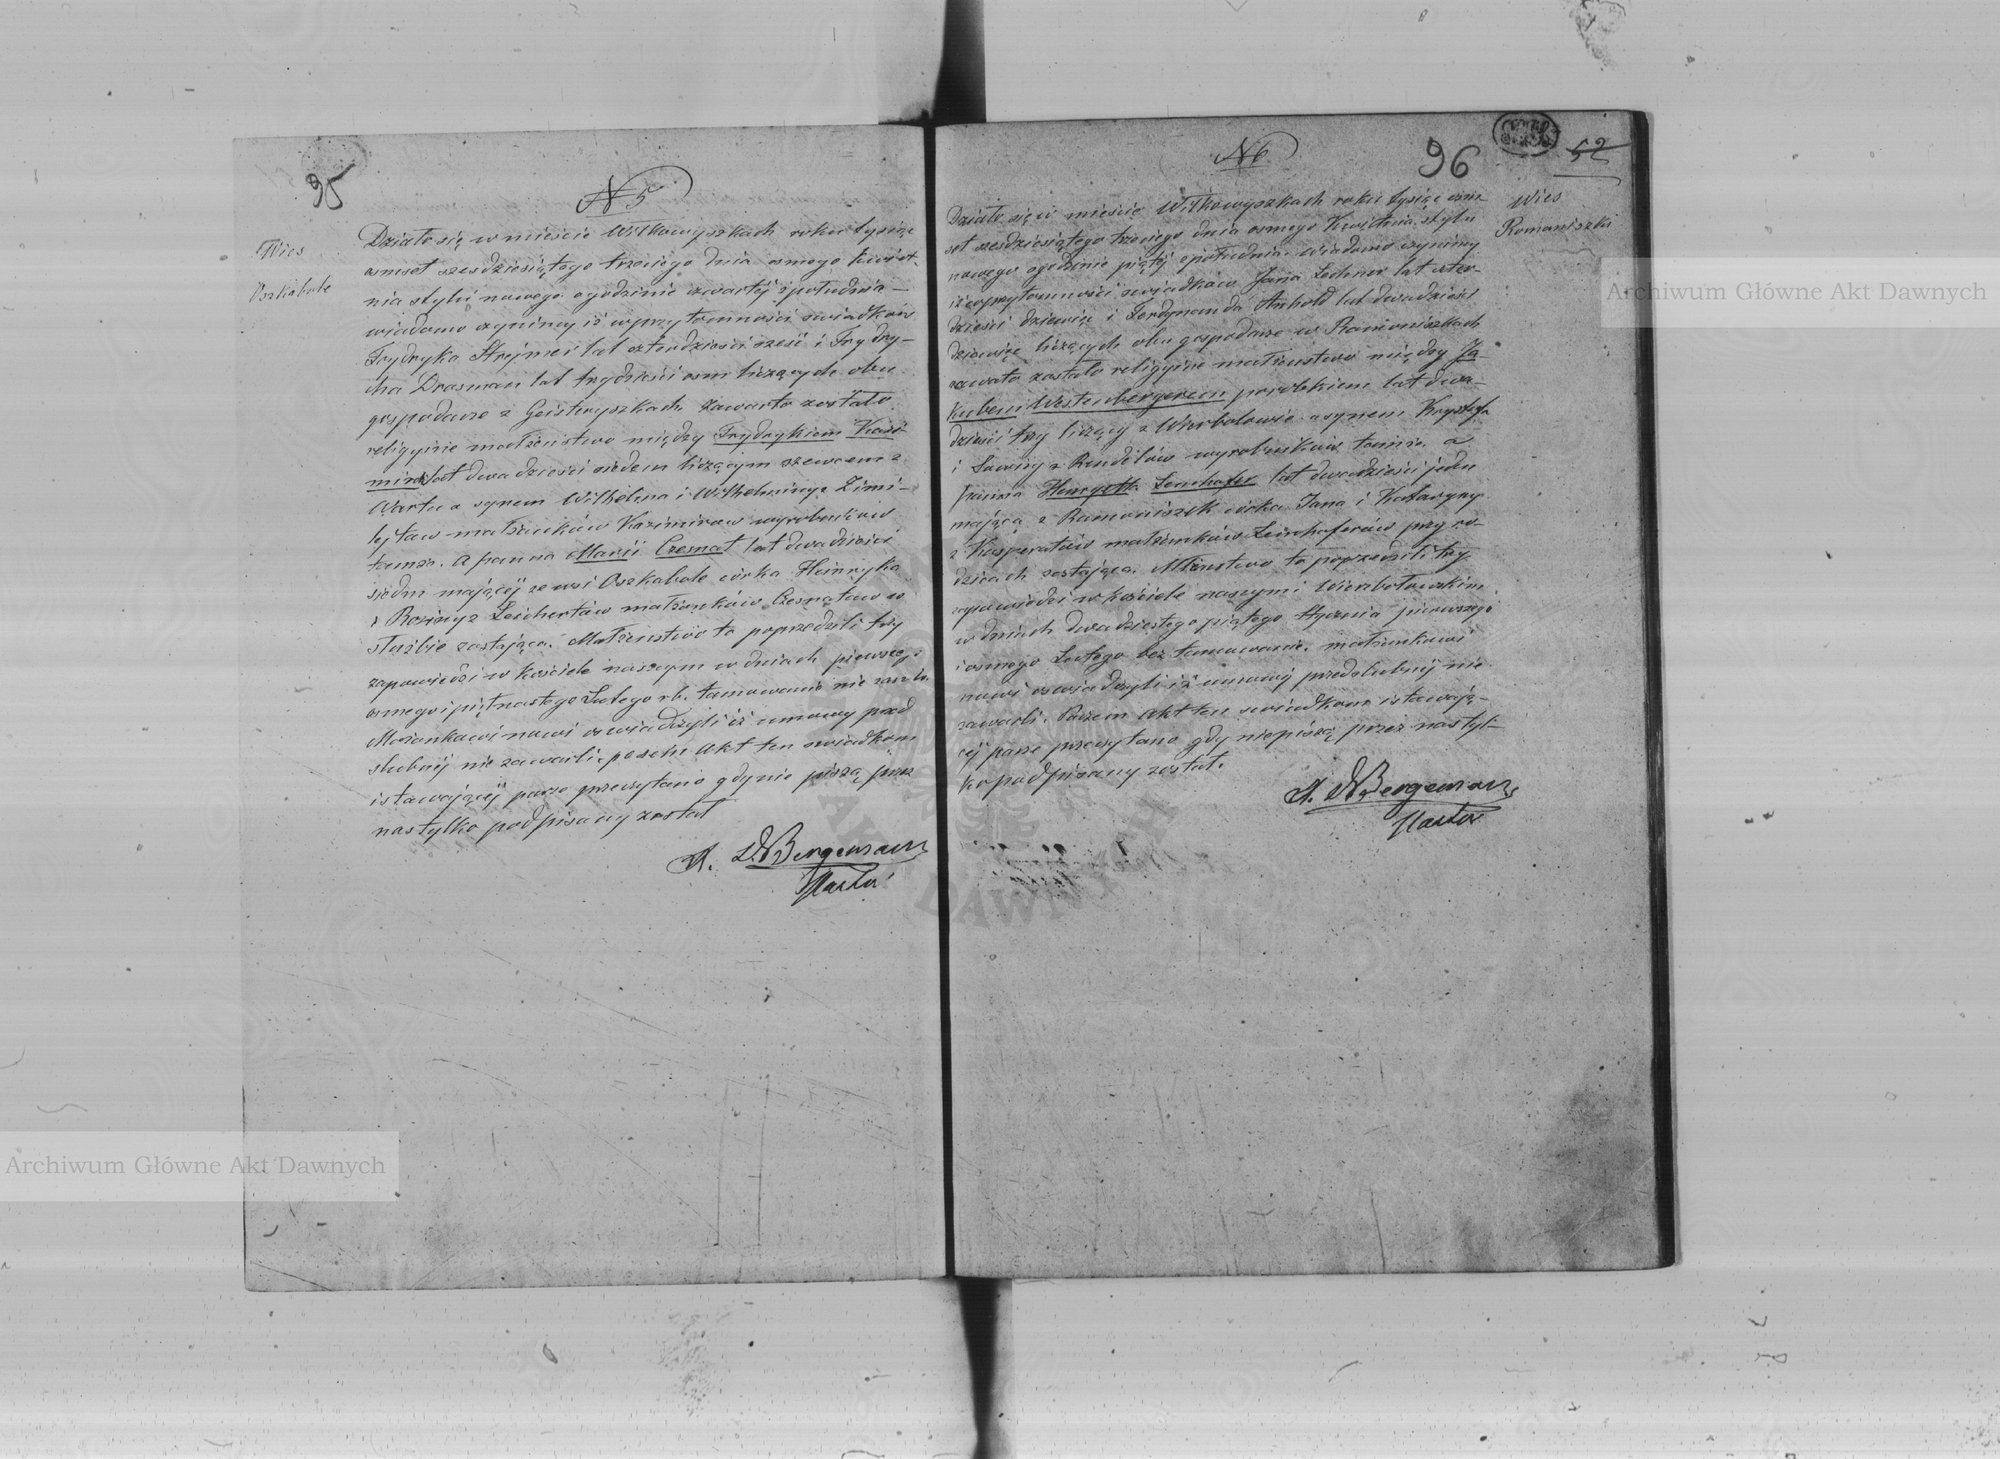 95
N 5
Wieś
Oszkabole
Działo się w mieście Wiłkowyszkach roku tysiąc
osmset szesdziesiątego trzeciego dnia osmego kwiet-
nia stylu nowego o godzinie czwartéj z południa –
wiadomo czyniney iż w przytomności świadków
Frydryka Strejmei lat czterdzieści sześć i Frydry-
cha Drasman lat trzydzieści osm liczących obu
gospodarze z Geisteryszkach zawarto zostało
religyine małżeństwo między Frydrykiem Kazi-
mir lat dwadzieścia siedem liczącym szewcem z
Wartu a synem Wilhelma i Wilhelminy z Zimi-
lejtaw małżonków Kazimiraw wyrobników
tamże. A panna Marii Czesnat lat dwadzieścia
siedm mającéj ze wsi Oszkabole córka Heinryka
i Roziny z Leichertów małżonków Czesnataw w
służbie zostająca. Małżeństwo to poprzedzili trzy
zapowiedzi w kościele naszym w dniach pierwszego
osmego i piętnastego Lutego rb. tamowanie nie zaszło.
Małżonkowi nowi oswiadczyli iż umowy przed
slubnéj nie zawarli, poczem Akt ten swiadkom
i stawającéj parze przeczytano gdy nie piszą przez
nas tylko podpisany został
A. D. Bergemann
Pastor
N 6
96
52
Wieś
Romaniszki
Działo się w mieście Wiłkowyszkach roku tysiąc osm-
set szesdziesiątego trzeciego dnia osmego Kwietnia stylu
nowego o godzinie piątéj z południa. Wiadomo czyninny
iż w przytomności świadków Jana Lechner lat czter-
dzieści dziewięć i Ferdynanda Anhold lat dwadzieści
dziewięć liczących obu gospodarze w Ramoniszkach
zawarto zostało religyine małżeństwo między Ja-
kubem Westenbergerem parobkiem lat dwa-
dzieści trzy liczący z Wierzbołowie a synem Krysztofa
i Lowizy z Rendelów wyrobników tamże. a
panna Henryetta Leuchafer lat dwadzieści jeden
mająca z Ramoniszek córka Jana i Katarzyny
z Kasperatów małżonków Leinhaferów przy ro-
dzicach zostająca. Młżeństwo to poprzedzili trzy
zapowiedzi w kościele naszym i Wierzbołowskim
w dniach dwadziestego piątego Stycznia pierwszego
i osmego Lutego bez tamowania. małżonkowi
nowi oswiadczyli iż umowy przedslubnéj nie
zawarli. Poczem Akt ten swiadkom i stawają-
céj parze przeczytano gdy niepiszą przez nas tyl-
ko podpisany został.
A. D. Bergemann
Pastor
Archiwum Główne Akt Dawnych
Archiwum Główne Akt Dawnych